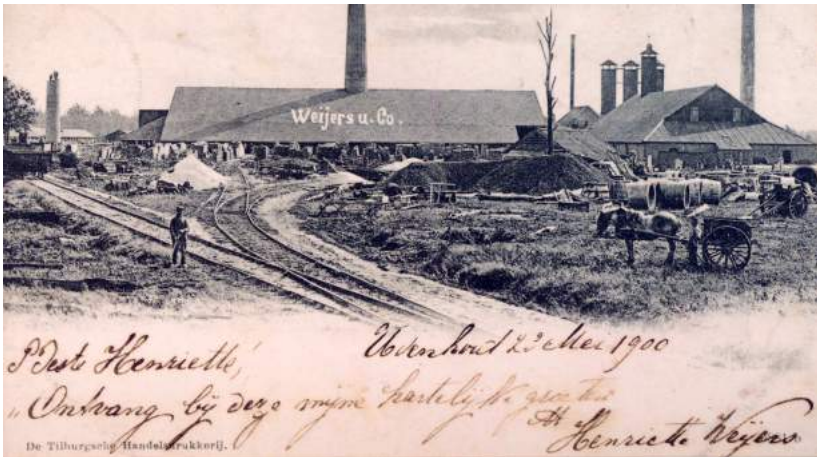 Weijers u. Co.
Udenhout 23 Mei 1900
Beste Henriette,
Ontvang bij deze mijne hartelijke groeten
Henriette Weijers
De Tilburgsche Handelsdrukkerij.